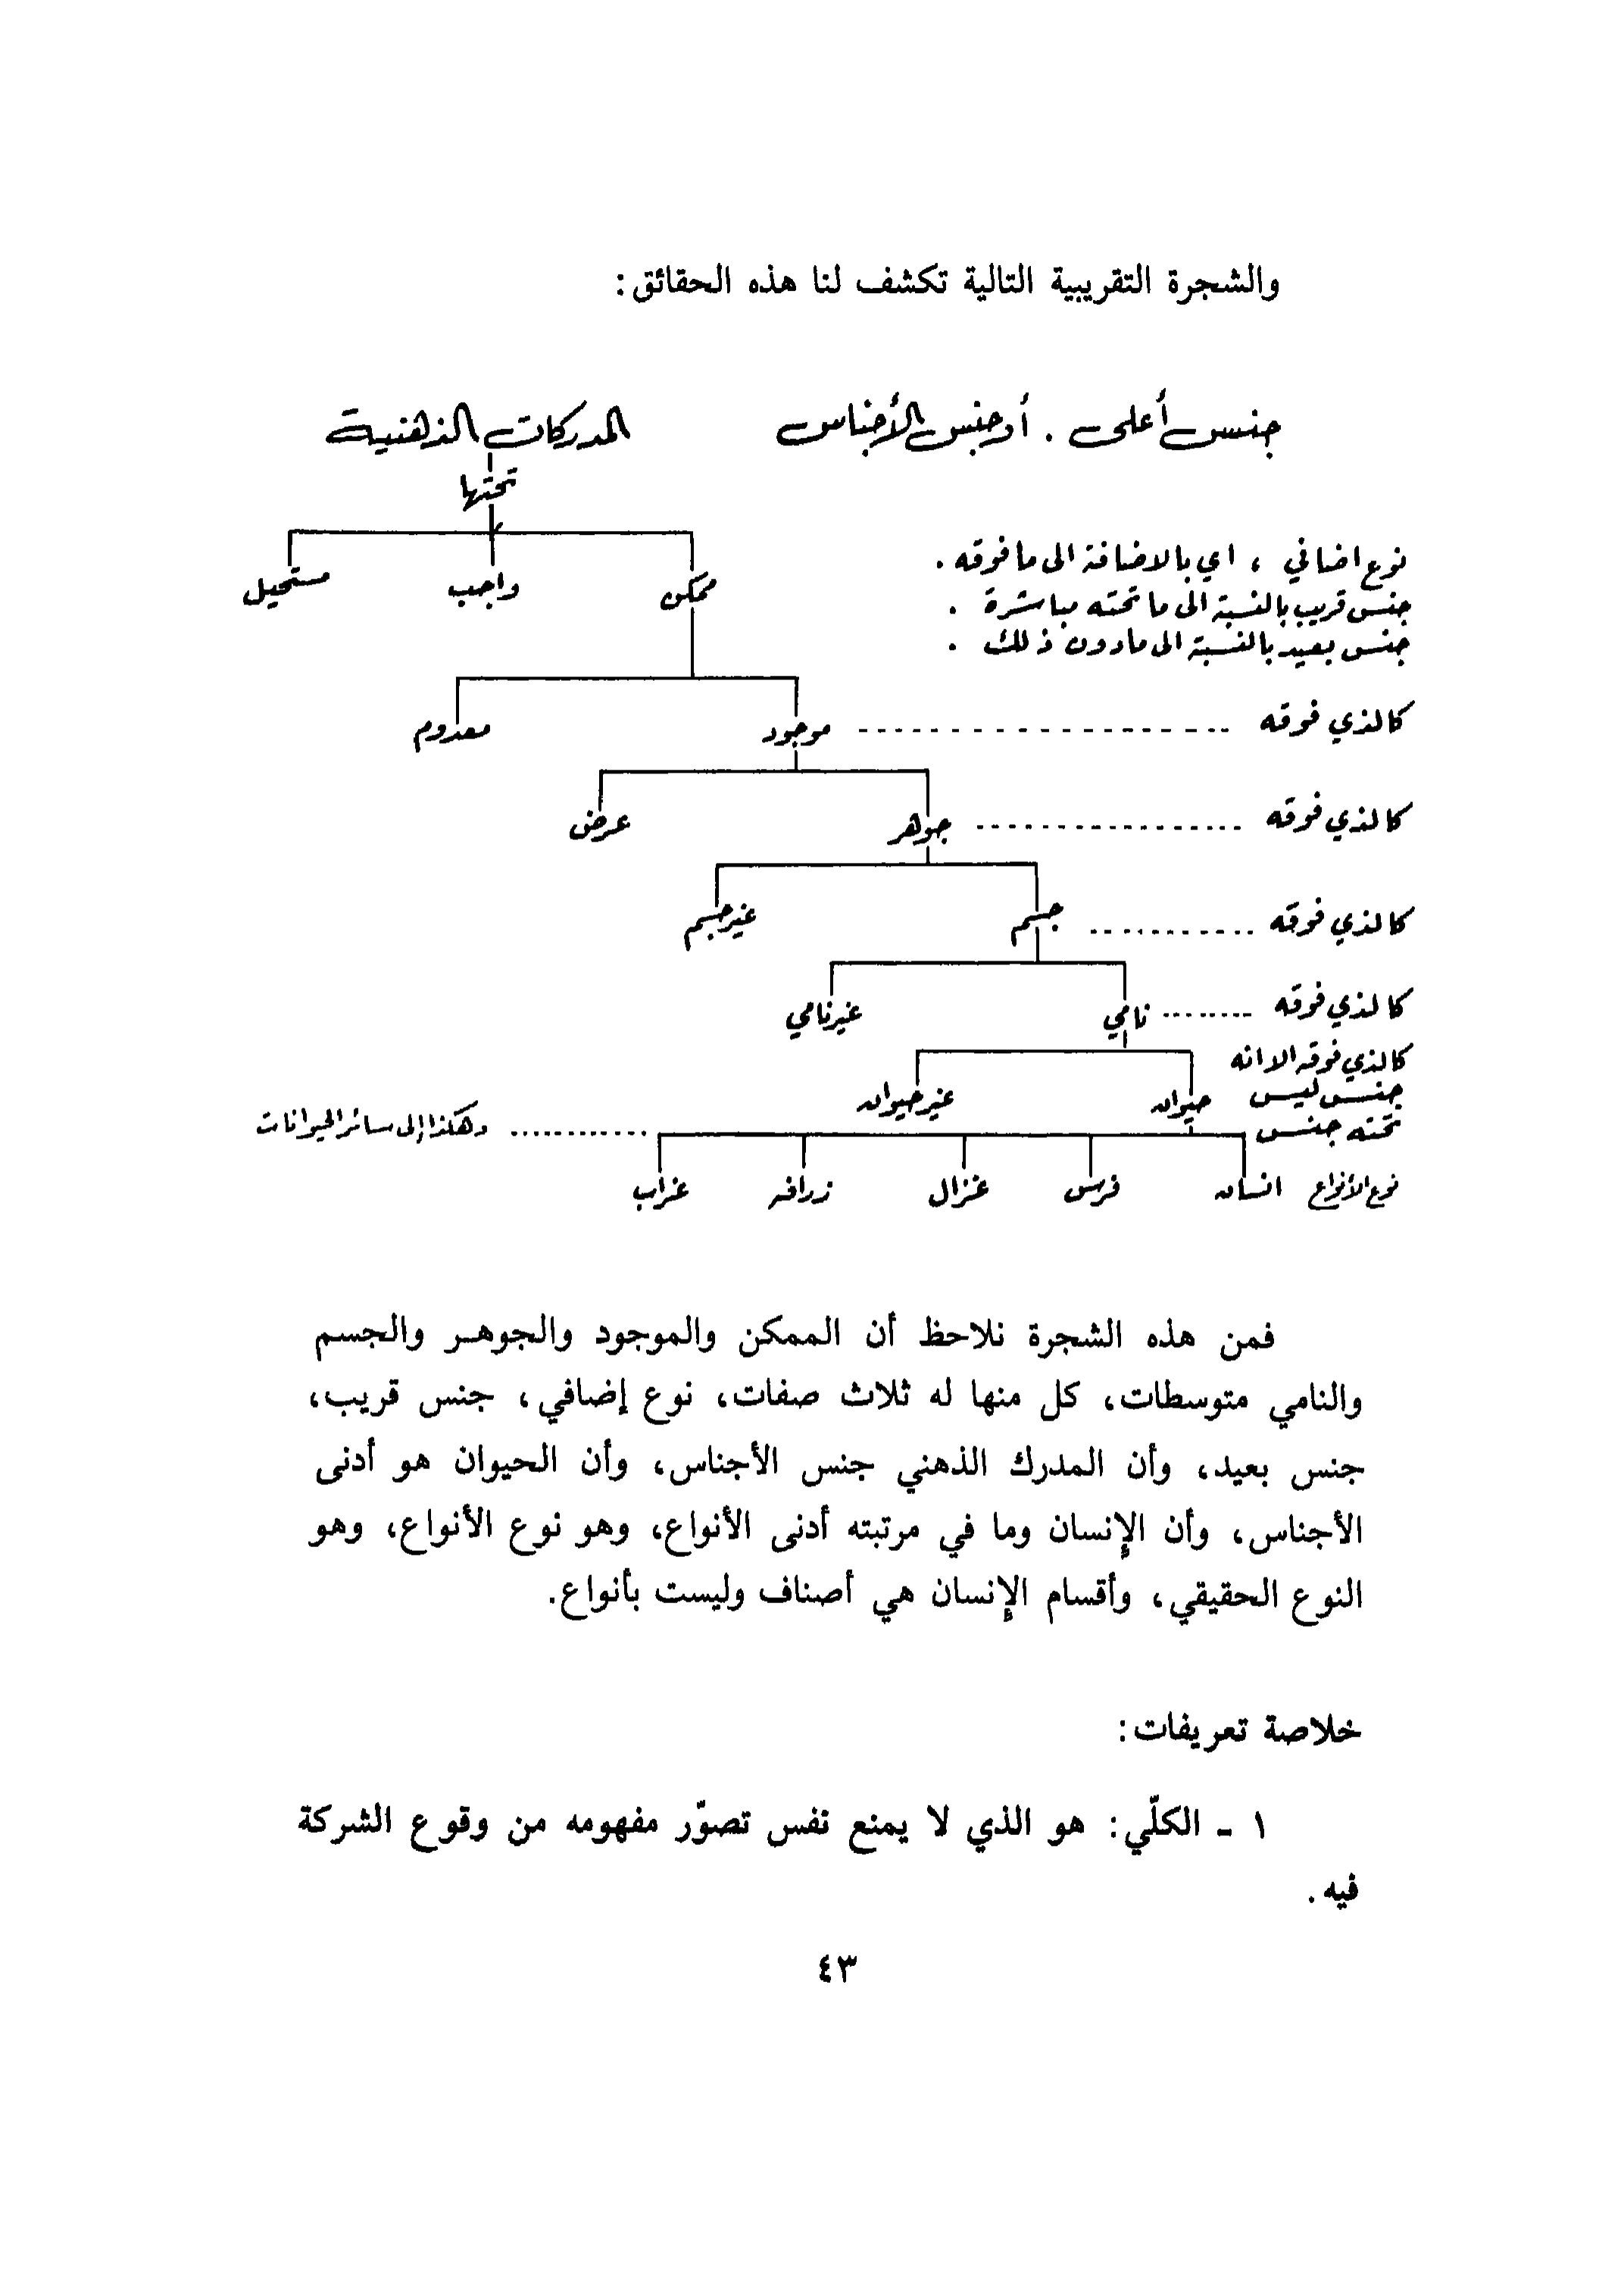 والشجرة التقريبية التالية تكشف لنا هذه الحقائق:
جنس أعلى . أو جنس الأجناس المدركات الذهنية
تحتها
نوع اضافي ، اي بالاضافة الى ما فوقه .
ممكن واجب مستحيل
جنس قريب بالنسبة الى ما تحته مباشرة .
جنس بعيد بالنسبة الى مادون ذلك .
كالذي فوقه .................... موجود معدوم
كالذي فوقه .................. جوهر عرض
كالذي فوقه ........... جسم غير جسم
كالذي فوقه ........ نامي غير نامي
كالذي فوقه الا انه
جنس ليس حيوان غير حيوان
تحته جنس ............ وهكذا إلى سائر الحيوانات
نوع الأنواع انسان فرس غزال زرافه غراب
فمن هذه الشجرة نلاحظ أن الممكن والموجود والجوهر والجسم
والنامي متوسطات، كل منها له ثلاث صفات، نوع إضافي، جنس قريب،
جنس بعيد، وأن المدرك الذهني جنس الأجناس، وأن الحيوان هو أدنى
الأجناس، وأن الإنسان وما في مرتبته أدنى الأنواع، وهو نوع الأنواع، وهو
النوع الحقيقي، وأقسام الإنسان هي أصناف وليست بأنواع.
خلاصة تعريفات:
١ ـ الكلّي: هو الذي لا يمنع نفس تصوّر مفهومه من وقوع الشركة
فيه .
٤٣